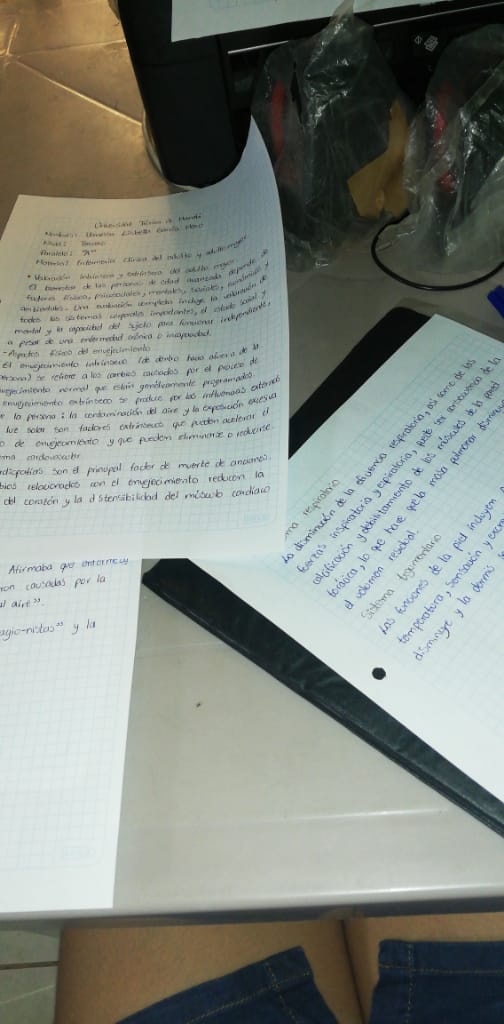 Universidad Técnica de Manabí
Nombres: García
Nivel: Tercero
Paralelo: "A"
Materia: Enfermería clínica del adulto y adulto mayor
* Valoración intrínseca y extrínseca del adulto mayor
El bienestar de las personas de edad avanzada depende de
factores físicos, psicosociales, mentales, sociales, económicos y
ambientales. Una evaluación completa incluye la valoración de
todos los sistemas corporales importantes, el estado social y
mental y la capacidad del sujeto para funcionar independiente,
a pesar de una enfermedad crónica o incapacidad.
- Aspectos físicos del envejecimiento
El envejecimiento intrínseco (de dentro hacia afuera de la
persona) se refiere a los cambios causados por el proceso de
vejecimiento normal que están genéticamente programados.
envejecimiento extrínseco se produce por las influencias externas
la persona: la contaminación del aire y la exposición excesiva
luz solar son factores extrínsecos que pueden acelerar el
o de envejecimiento y que pueden eliminarse o reducirse.
ma cardiovascular
rdiopatías son el principal factor de muerte de ancianos.
bios relacionados con el envejecimiento reducen la
del corazón y la distensibilidad del músculo cardíaco
Afirmaba que enfermeu
ron causadas por la
al aire".
agio-nistas" y la
ma respiratorio
La disminución de la eficiencia respiratoria, así como de las
fuerzas inspiratoria y espiratoria, puede ser consecuencia de la
calcificación y debilitamiento de los músculos de la pared
torácica, lo que hace que la masa pulmonar
el volumen residual.
Sistema tegumentario
Las funciones de la piel incluyen
temperatura, sensación y
disminuye y la dermis